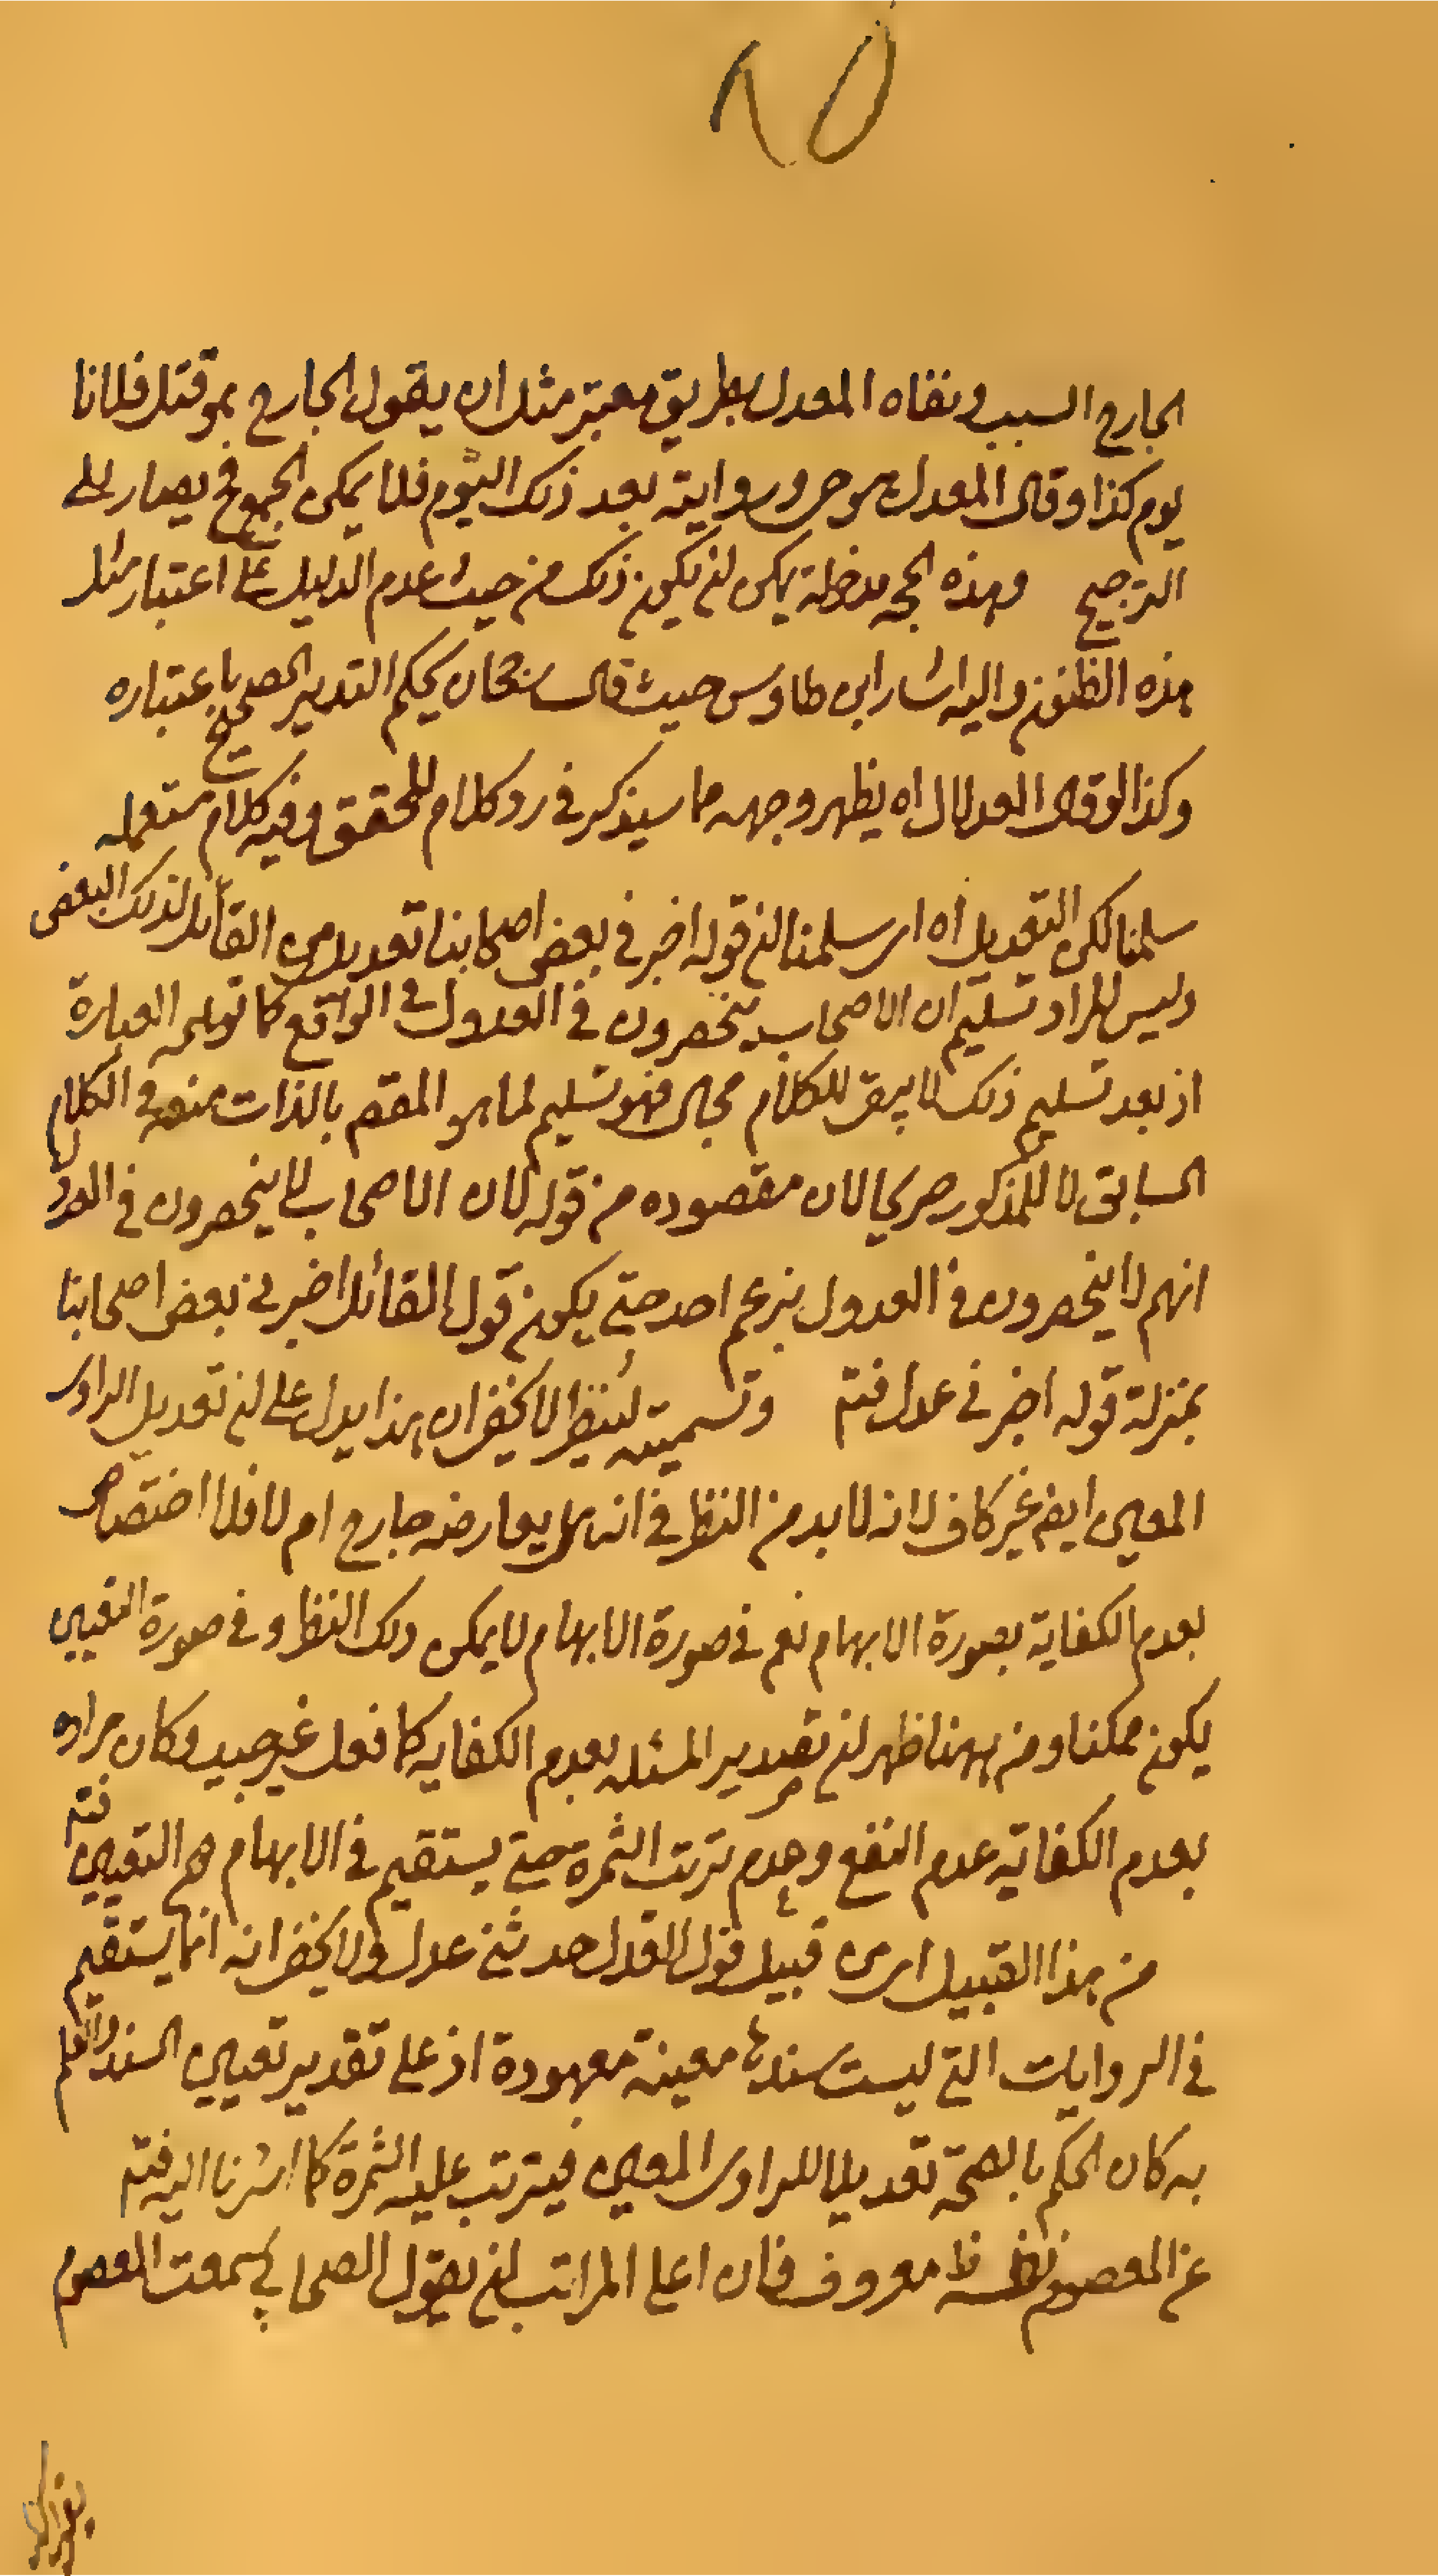 ٢٥
الجارح السبب ونفاه المعدل بطريق معتبر مثل ان يقول الجارح هو قتل فلانا
يوم كذا وقال المعدل هو حي وروايته بعد ذلك اليوم فلا يمكن الجمع فح يصار الى
الترجيح وهذه الحجة مدخولة يمكن ان يكون ذلك من حيث عدم الدليل على اعتبار مثل
هذه الظنون واليه اشار ابن طاوس حيث قال ان كان يحكم التدبر الصحيح باعتباره
وكذا لو قال العدلان اه يظهر وجهه مما سيذكر في رد كلام المحقق وفيه كلام ستعمله
سلمنا لكن التعديل اه اى سلمنا ان قوله اخبرني بعض اصحابنا تعديل من القائل لذلك البعض
وليس المراد تسليم ان الاصحاب منحصرون في العدول في الواقع كما توهمه العبارة
اذ بعد تسليم ذلك لا يبقى للكلام مجال فهو تسليم لما هو المقص بالذات منعه في الكلام
السابق لا للمذكور صريحا لان مقصوده من قوله لان الاصحاب لا ينحصرون في العدول
انهم لا ينحصرون في العدول بزعم احد حتى يكون قول القائل اخبرني بعض اصحابنا
بمنزلة قوله اخبرني عدل فتم وتسميته لينظر لا يخفى ان هذا يدل على ان تعديل الراوى
المعين ايض غير كاف لانه لا بد من النظر في انه هل يعارضه جارح ام لا فلا اختصاص
بعدم الكفاية بصورة الابهام نعم في صورة الابهام لا يمكن ذلك النظر وفي صورة التعيين
يكون ممكنا ومن ههنا ظهر ان تصدير المسئلة بعدم الكفاية كما فعل غير جيد وكان مراده
بعدم الكفاية عدم النفع وعدم ترتب الثمرة حتى يستقيم في الابهام مع التعيين فتم
من هذا القبيل اى من قبيل قول العدل حدثني عدل ولا يخفى انه انما يستقيم
في الروايات التي ليست سندها معينة معهودة اذ على تقدير تعيين السند والعلم
به كان الحكم بالصحة تعديلا للراوى المعين فيترتب عليه الثمرة كما اشرنا اليه فتم
عن المعصوم نفسه ظ معروف فان اعلى المراتب ان يقول الصحابي سمعت المعصوم